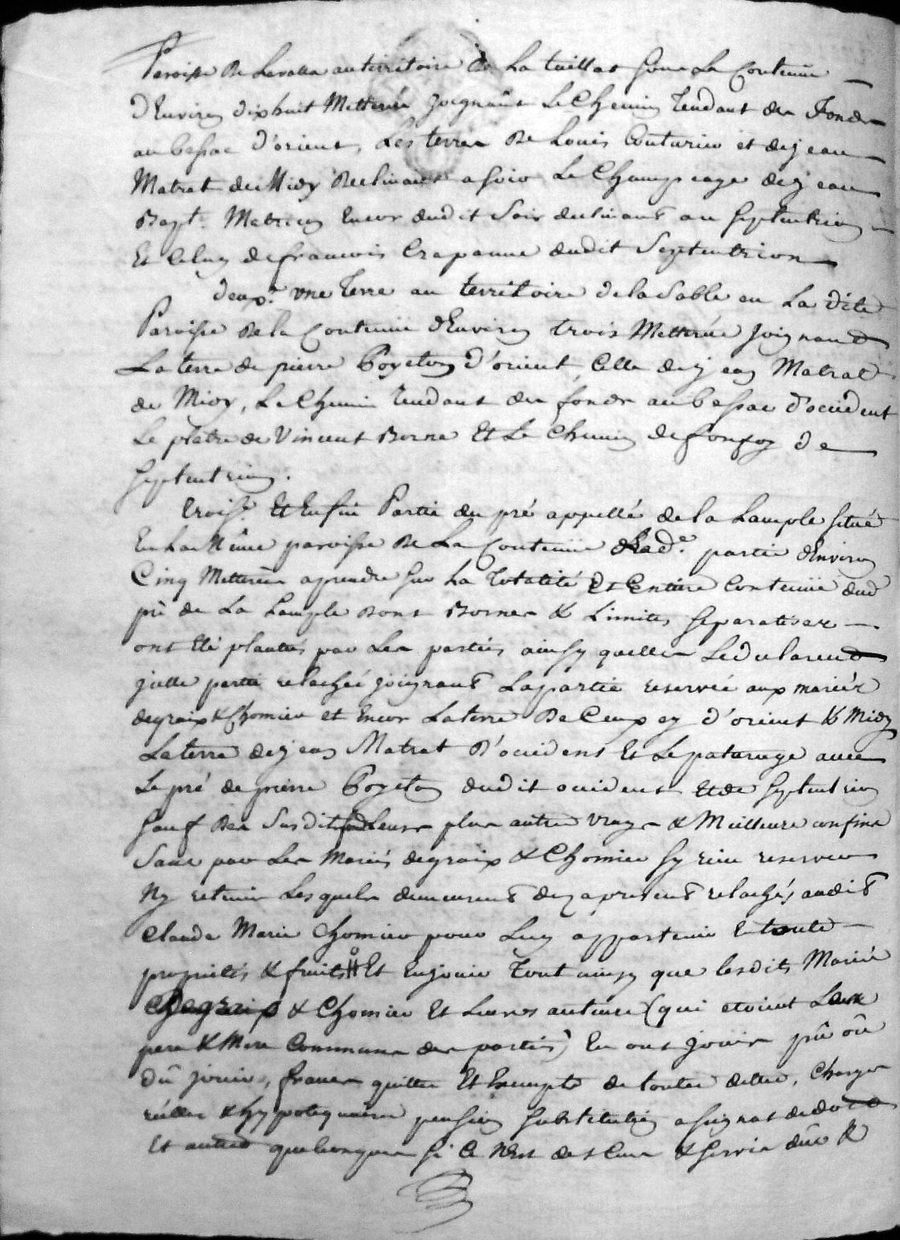 Paroisse de Lavalla au territoire de La taillat Sous La Contenüe
d'Environ dixhuit Metterée joignant Le Chemin Tendant des Fonds
au bessac d'orient, Les terres de Louis Couturier et de jean
Matrat de Midy declinant a soir Le Champeage de jean
Bapt. Matricon Encor dudit Soir declinant au septentrion
Et Celuy de francois Crapanne dudit Septentrion
deux.t une Terre au territoire de la Sable en La dite
Paroisse de la Contenüe d'Environ trois Metterée joignant
La terre de pierre Poyeton d'orient Celle de jean Matrat
de Midy, Le Chemin Tendant des fonds au bessac d'occident
Le platre de Vincent Borne Et Le Chemin de de
septentrion.
trois.t Et Enfin Partie du pré appellé de la Lample situé
En La Même paroisse de La Contenüe de Lad.e partie d'Environ
Cinq Metterée aprendre sur La Totalité Et Entiere Contenüe dud
pré de La Lample dont Bornes & Limites separatives
ont été plantés par Les parties ainsy quelles Le declarent
jcelle partie relachée joignant La partie reservée aux mariés
degraix & Chomier et Encor La terre De d'orient & Midy
La terre de jean Matrat d'occident Et Le paturage avec
Le pré de pierre Poyeton dudit occident et de septentrion
sauf des Susdits Leurs plus autres vrays & Meilleurs confins
Sans par Les Mariés degraix & Chomier sy rien reserver
Ny retenir Lesquels demeurent dez apresent relachés audit
Claude Marie Chomier pour Luy appartenir En toute
proprietés & fruits Et En jouir Tout ainsy que lesdits Mariés
degraix & Chomier Et Leurs auteurs (qui etoient Leur
pere & Mere Communs des parties) En ont jouir pû où
dû jouir, francs quitte Et Exempte de toutes dettes, Charges
réelles & hypotequaires pension substitution assignat de dot
Et autres quelconques si Ce N'est de & servis dûs &